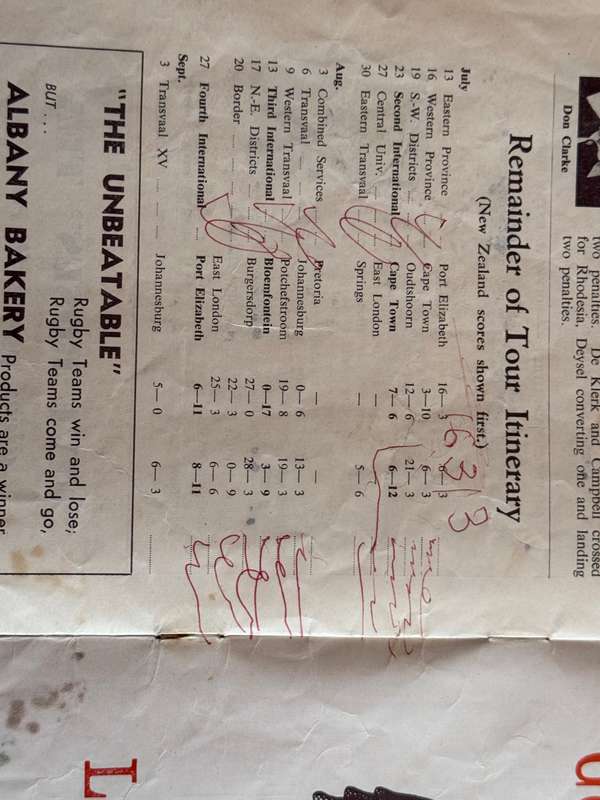 Don Clarke
two penalties. De Klerk and Campbell crossed
for Rhodesia, Deysel converting one and landing
two penalties.
Remainder of Tour Itinerary
(New Zealand scores shown first.)
July
13 Eastern Province Port Elizabeth 16— 3 6— 3
16 Western Province Cape Town 3—10 6— 3
19 S.-W. Districts .... Oudtshoorn 12— 6 21— 3
23 Second International Cape Town 7— 6 6—12
27 Central Univ. .... East London —
30 Eastern Transvaal Springs — 5— 6
Aug.
3 Combined Services Pretoria — —
6 Transvaal .... Johannesburg 0— 6 13— 3
9 Western Transvaal Potchefstroom 19— 8 19— 3
13 Third International Bloemfontein 0—17 3— 9
17 N.-E. Districts .... Burgersdorp 27— 0 28— 3
20 Border .... East London 22— 3 0— 9
25— 3 6— 6
27 Fourth International .... Port Elizabeth 6—11 8—11
Sept.
3 Transvaal XV .... Johannesburg 5— 0 6— 3
"THE UNBEATABLE"
Rugby Teams win and lose;
BUT ... Rugby Teams come and go,
ALBANY BAKERY Products are a winner
L